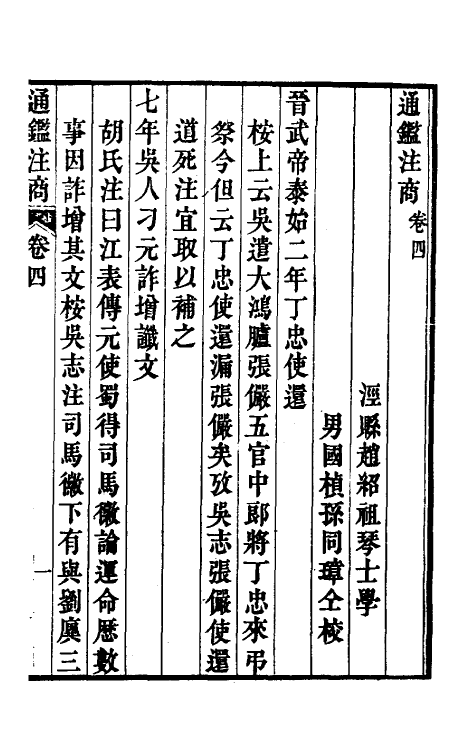 通鑑注商卷四
涇縣趙紹祖琴士學
男國楨孫同瑋仝校
晉武帝泰始二年丁忠使還
桉上云吳遣大鴻臚張儼五官中郎將丁忠來弔
祭今但云丁忠使還漏張儼矣攷吳志張儼使還
道死注宜取以補之
七年吳人刁元詐增讖文
胡氏注曰江表傳元使蜀得司馬徽論運命歷數
事因詐增其文桉吳志注司馬徽下有與劉廙三
通鑑注商
卷四
一